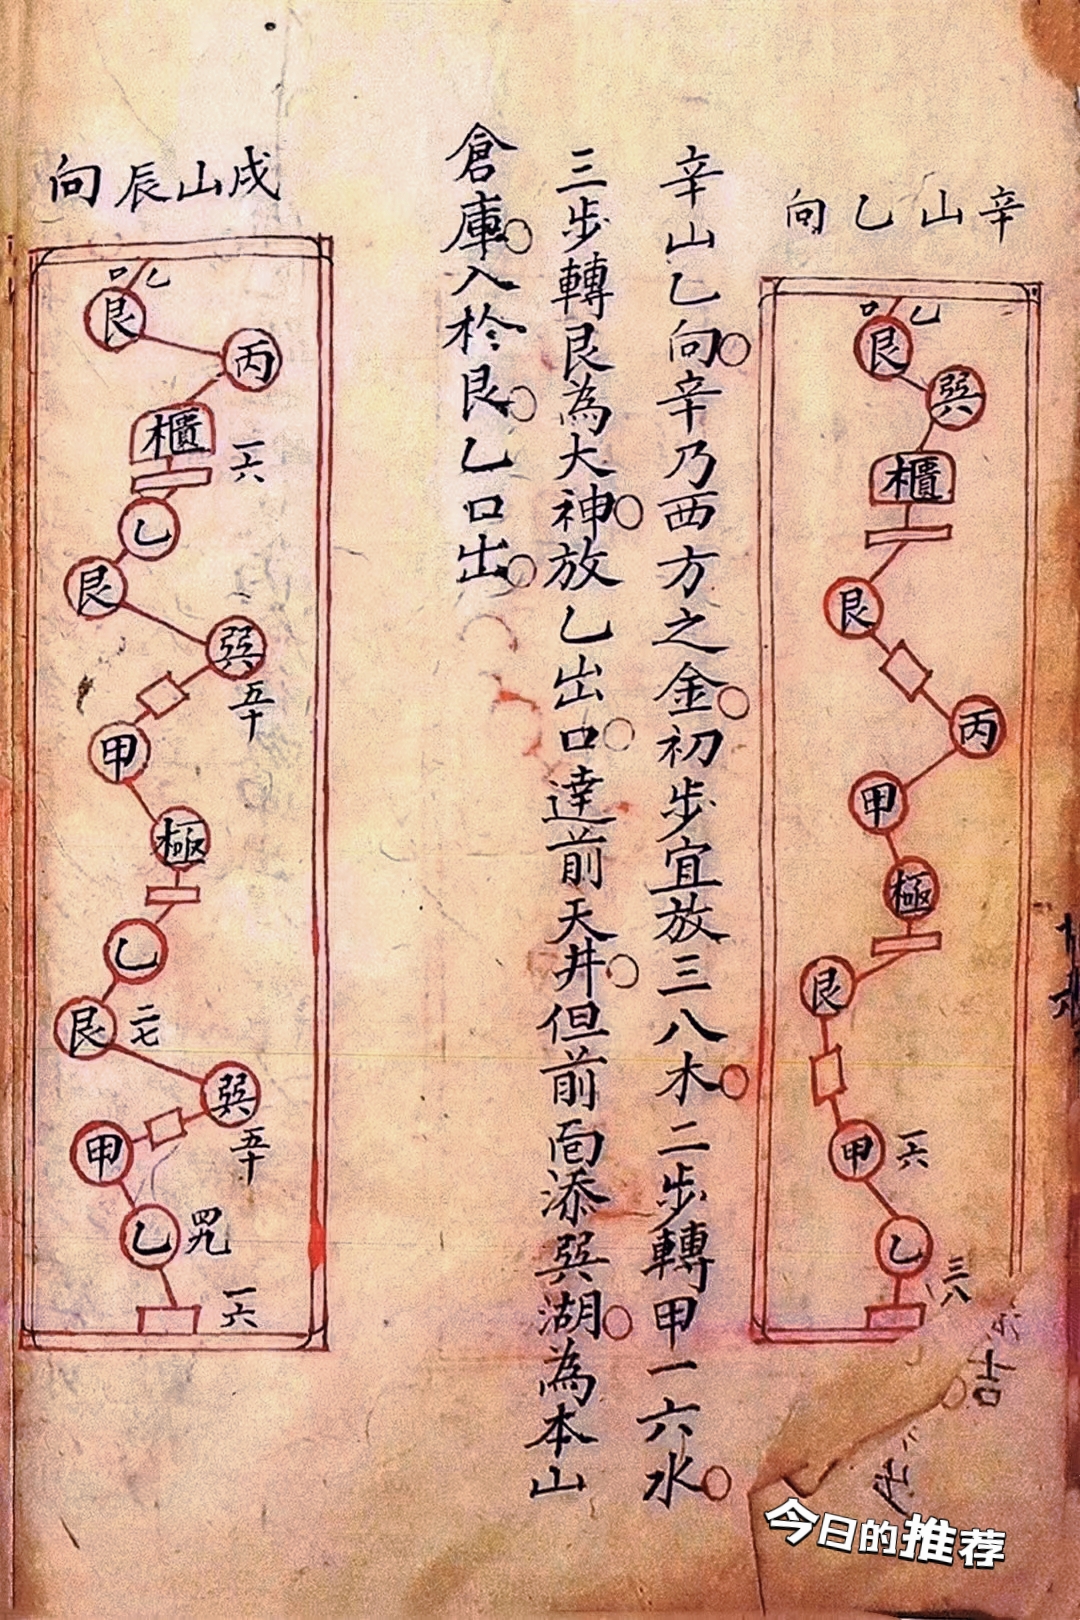 辛山乙向
口乙
艮
巽
櫃
艮
丙
甲
極
艮
甲 一六
乙
三八
吉
辛山乙向辛乃西方之金初步宜放三八木二步轉甲一六水
三步轉艮為大神放乙出口達前天井但前面添巽湖為本山
倉庫入於艮乙口出
戌山辰向
口乙
艮
丙
櫃 一六
乙
艮
巽
五十
甲
極
乙
艮 二七
巽
五十
甲
乙 四九
一六
今日的推荐